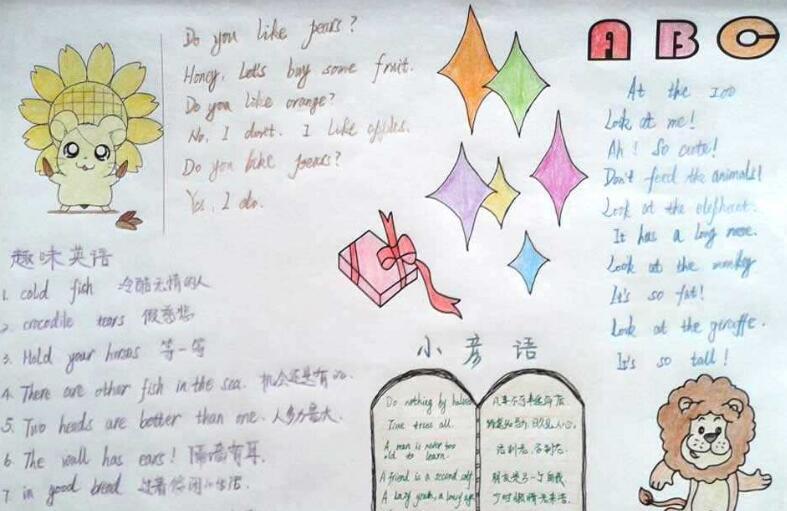 Do you like pears?
Honey, Let's buy some fruit.
Do you like orange?
No, I don't. I like apples.
Do you like pears?
Yes, I do.
ABC
At the zoo
Look at me!
Ah! So cute!
Don't feed the animals!
Look at the elephant.
It has a long nose.
Look at the monkey
It's so fat!
Look at the giraffe.
It's so tall!
趣味英语
1. cold fish 冷酷无情的人
2. crocodile tears 假慈悲
3. Hold your horses 等一等
4. There are other fish in the sea. 机会还是有的.
5. Two heads are better than one. 人多力量大.
6. The wall has ears! 隔墙有耳.
7. in good bread 过着悠闲的生活
小彦语
Do nothing by halves
Time tries all.
A man is never too
old to learn.
A friend is a second self
A lazy youth, a lousy age
凡事不可半途而废
路遥知马力, 日久见人心.
活到老, 学到老.
朋友是另一个自我
少时懒惰老来苦.